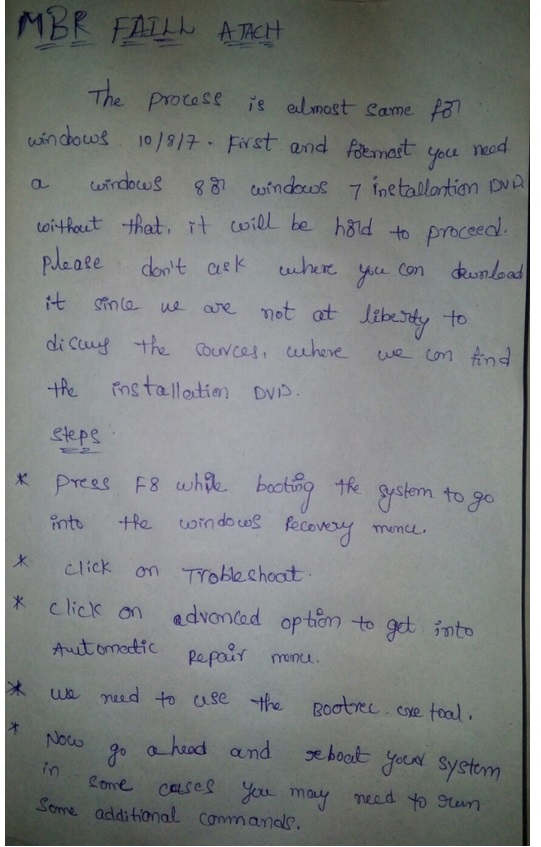 MBR FAILL ATACH
The process is almost same for
windows 10/8/7. First and foremost you need
a windows 8 or windows 7 installation DVD.
without that, it will be hard to proceed.
please don't ask where you can download
it since we are not at liberty to
discuss the sources, where we can find
the installation DVD.
steps
* press F8 while booting the system to go
into the windows Recovery menu.
* click on Trobleshoot.
* click on advanced option to get into
Automatic Repair menu.
* we need to use the Bootrec.exe tool.
* Now go ahead and reboot your system
in some cases you may need to run
some additional commands.